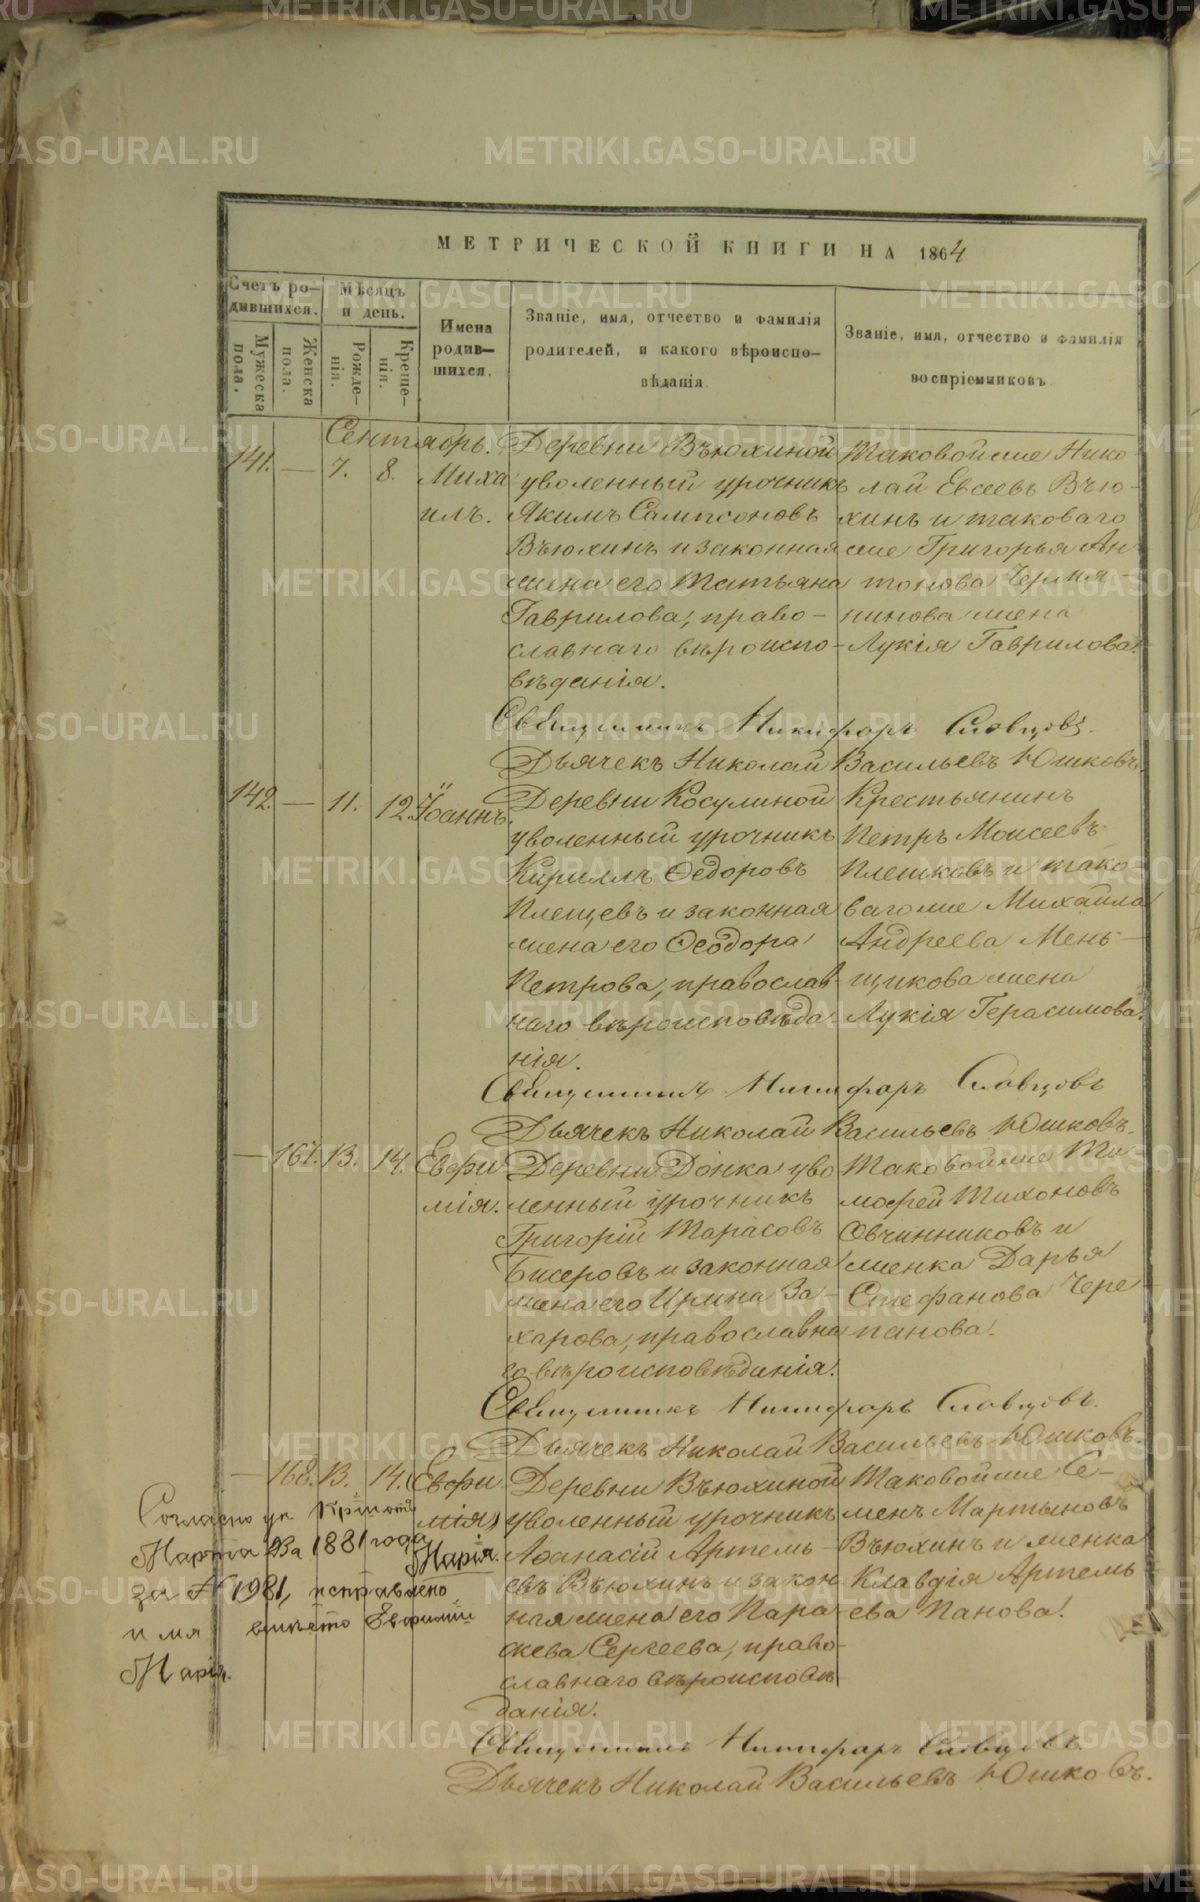 МЕТРИЧЕСКОЙ КНИГИ НА 1864
Счетъ ро-
дившихся.
Мѣсяцъ
и день.
Мужеска
пола.
Женска
пола.
Рожде-
нія.
Креще-
нія.
Имена
родив-
шихся.
Званіе, имя, отчество и фамилія
родителей, и какого вѣроиспо-
вѣданія.
Званіе, имя, отчество и фамилія
воспріемниковъ
Сентябрь.
141. — 7. 8.
Миха
илъ.
Деревни Вьюхиной
уволенный урочникъ
Якимъ Сампсоновъ
Вьюхинъ и законная
жена его Татьяна
Гаврилова, право-
славнаго вѣроиспо-
вѣданія.
Таковой же Нико-
лай Евсеевъ Вью-
хинъ и таковаго
же Григорья Ан-
тонова Чермя-
нинова жена
Лукія Гаврилова.
Священникъ Никифоръ Словцовъ.
Дьячекъ Николай Васильевъ Юшковъ.
142. — 11. 12.
Іоаннъ.
Деревни Косулиной
уволенный урочникъ
Кириллъ Ѳедоровъ
Плещевъ и законная
жена его Ѳеодора
Петрова, православ-
наго вѣроисповѣда-
нія.
Крестьянинъ
Петръ Моисеевъ
Плешковъ и тако-
ваго же Михаила
Андреева Мень-
щикова жена
Лукія Герасимова.
Священникъ Никифоръ Словцовъ
Дьячекъ Николай Васильевъ Юшковъ.
— 167. 13. 14.
Евфи-
мія.
Деревни Донка уво
ленный урочникъ
Григорій Тарасовъ
Бисеровъ и законная
жена его Ирина За-
харова, православна
го вѣроисповѣданія.
Таковой же Ти-
мофей Тихоновъ
Овчинниковъ и
женка Дарья
Стефанова Чере-
панова.
Священникъ Никифоръ Словцовъ.
Дьячекъ Николай Васильевъ Юшковъ.
— 168. 13. 14.
(Евфи
мія)
Марія.
Деревни Вьюхиной
уволенный урочникъ
Аѳанасій Артемь-
евъ Вьюхинъ и закон
ная жена его Пара-
скева Сергеева, право-
славнаго вѣроисповѣ-
данія.
Таковой же Се-
менъ Мартыновъ
Вьюхинъ и женка
Клавдія Артемь-
ева Панова.
Согласно ук.
Марта 1881 года
за № 1981, исправлено
имя вмѣсто Евфиміи
Марія.
Священникъ Никифоръ Словцовъ
Дьячекъ Николай Васильевъ Юшковъ.
METRIKI.GASO-URAL.RU